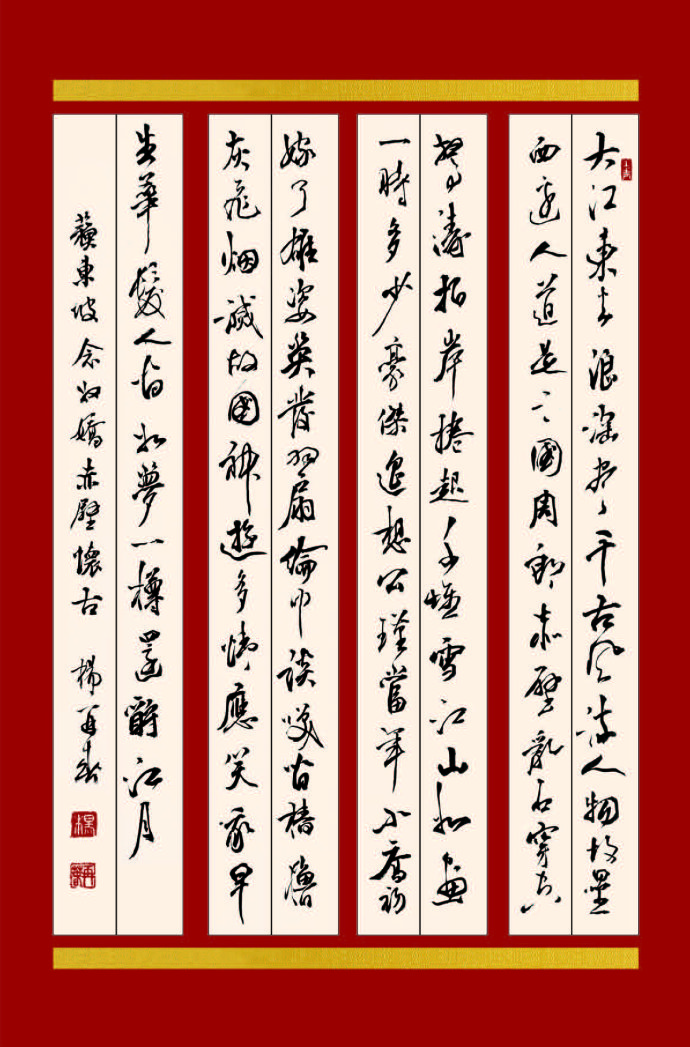 大江東去浪淘盡千古風流人物故壘
西邊人道是三國周郎赤壁亂石穿空
驚濤拍岸捲起千堆雪江山如畫
一時多少豪傑遥想公瑾當年小喬初
嫁了雄姿英發羽扇綸巾談笑間檣櫓
灰飛烟滅故國神遊多情應笑我早
生華髮人間如夢一樽還酹江月
蘇東坡念奴嬌赤壁懷古 楊再春